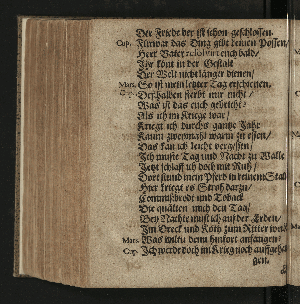 Der Friede der ist schon geschlossen.
Cup. Nur war das Ding gibt keinen Possen/
Herr Vater resolvirt euch bald/
Ihr könt in der Gestalt
Der Welt nicht länger dienen/
Mars. So ist mein letzter Tag erschienen.
Cup. Deshalben sterbt nur nicht/
Was ist das euch gebricht?
Als ich im Kriege war/
Kriegt ich durchs gantze Jahr
Kaum zweymahl warm zu essen/
Das kan ich leicht vergessen/
Ich muste Tag und Nacht zu Walle
Jetzt schlaff ich doch mit Ruh/
Dort stund mein Pferd in keinem Stall
Hier kriegt es Stroh darzu/
Commisbrodt und Toback
Die quälten mich den Tag/
Bey Nachte must ich auf der Erden/
Im Dreck und Koth zum Ritter werd
Mars. Was wiltu denn hinfort anfangen?
Cup. Ich werde doch im Krieg noch aufgehan
gen.